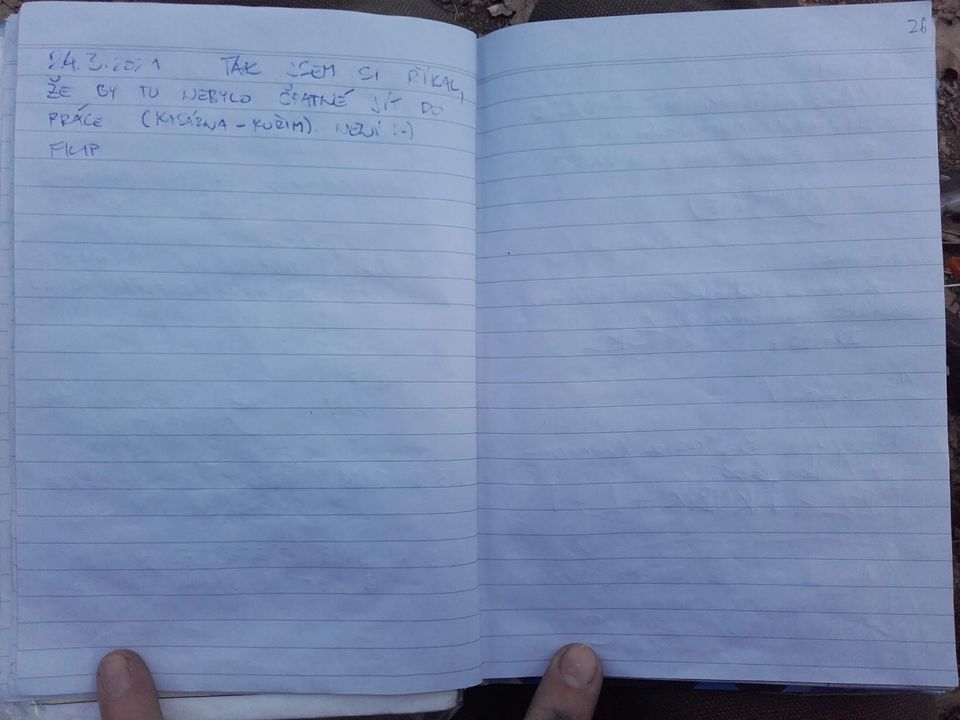 26
24.3.2021 TAK JSEM SI ŘÍKAL,
ŽE BY TU NEBYLO ŠPATNÉ JÍT DO
PRÁCE (KASÁRNA - KUŘIM). NENÍ :-)
FILIP